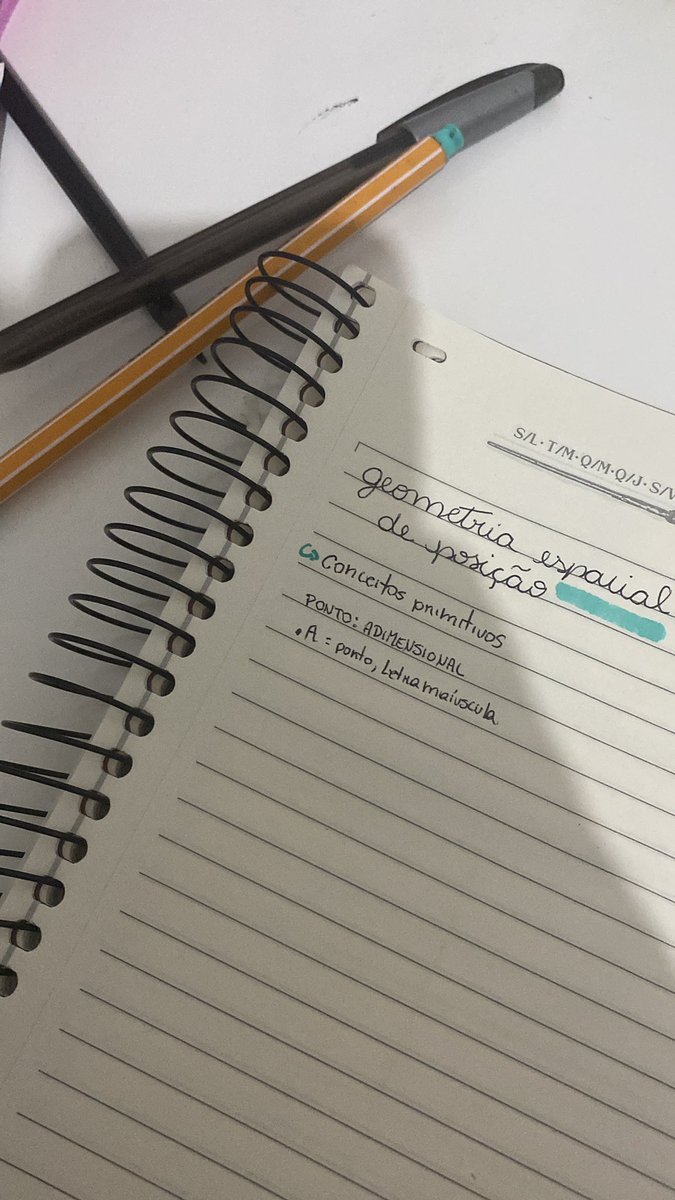 S/L·T/M·Q/M·Q/J·S/V
geometria espacial
de posição
Conceitos primitivos
PONTO: ADIMENSIONAL
•A = ponto, Letra maiúscula